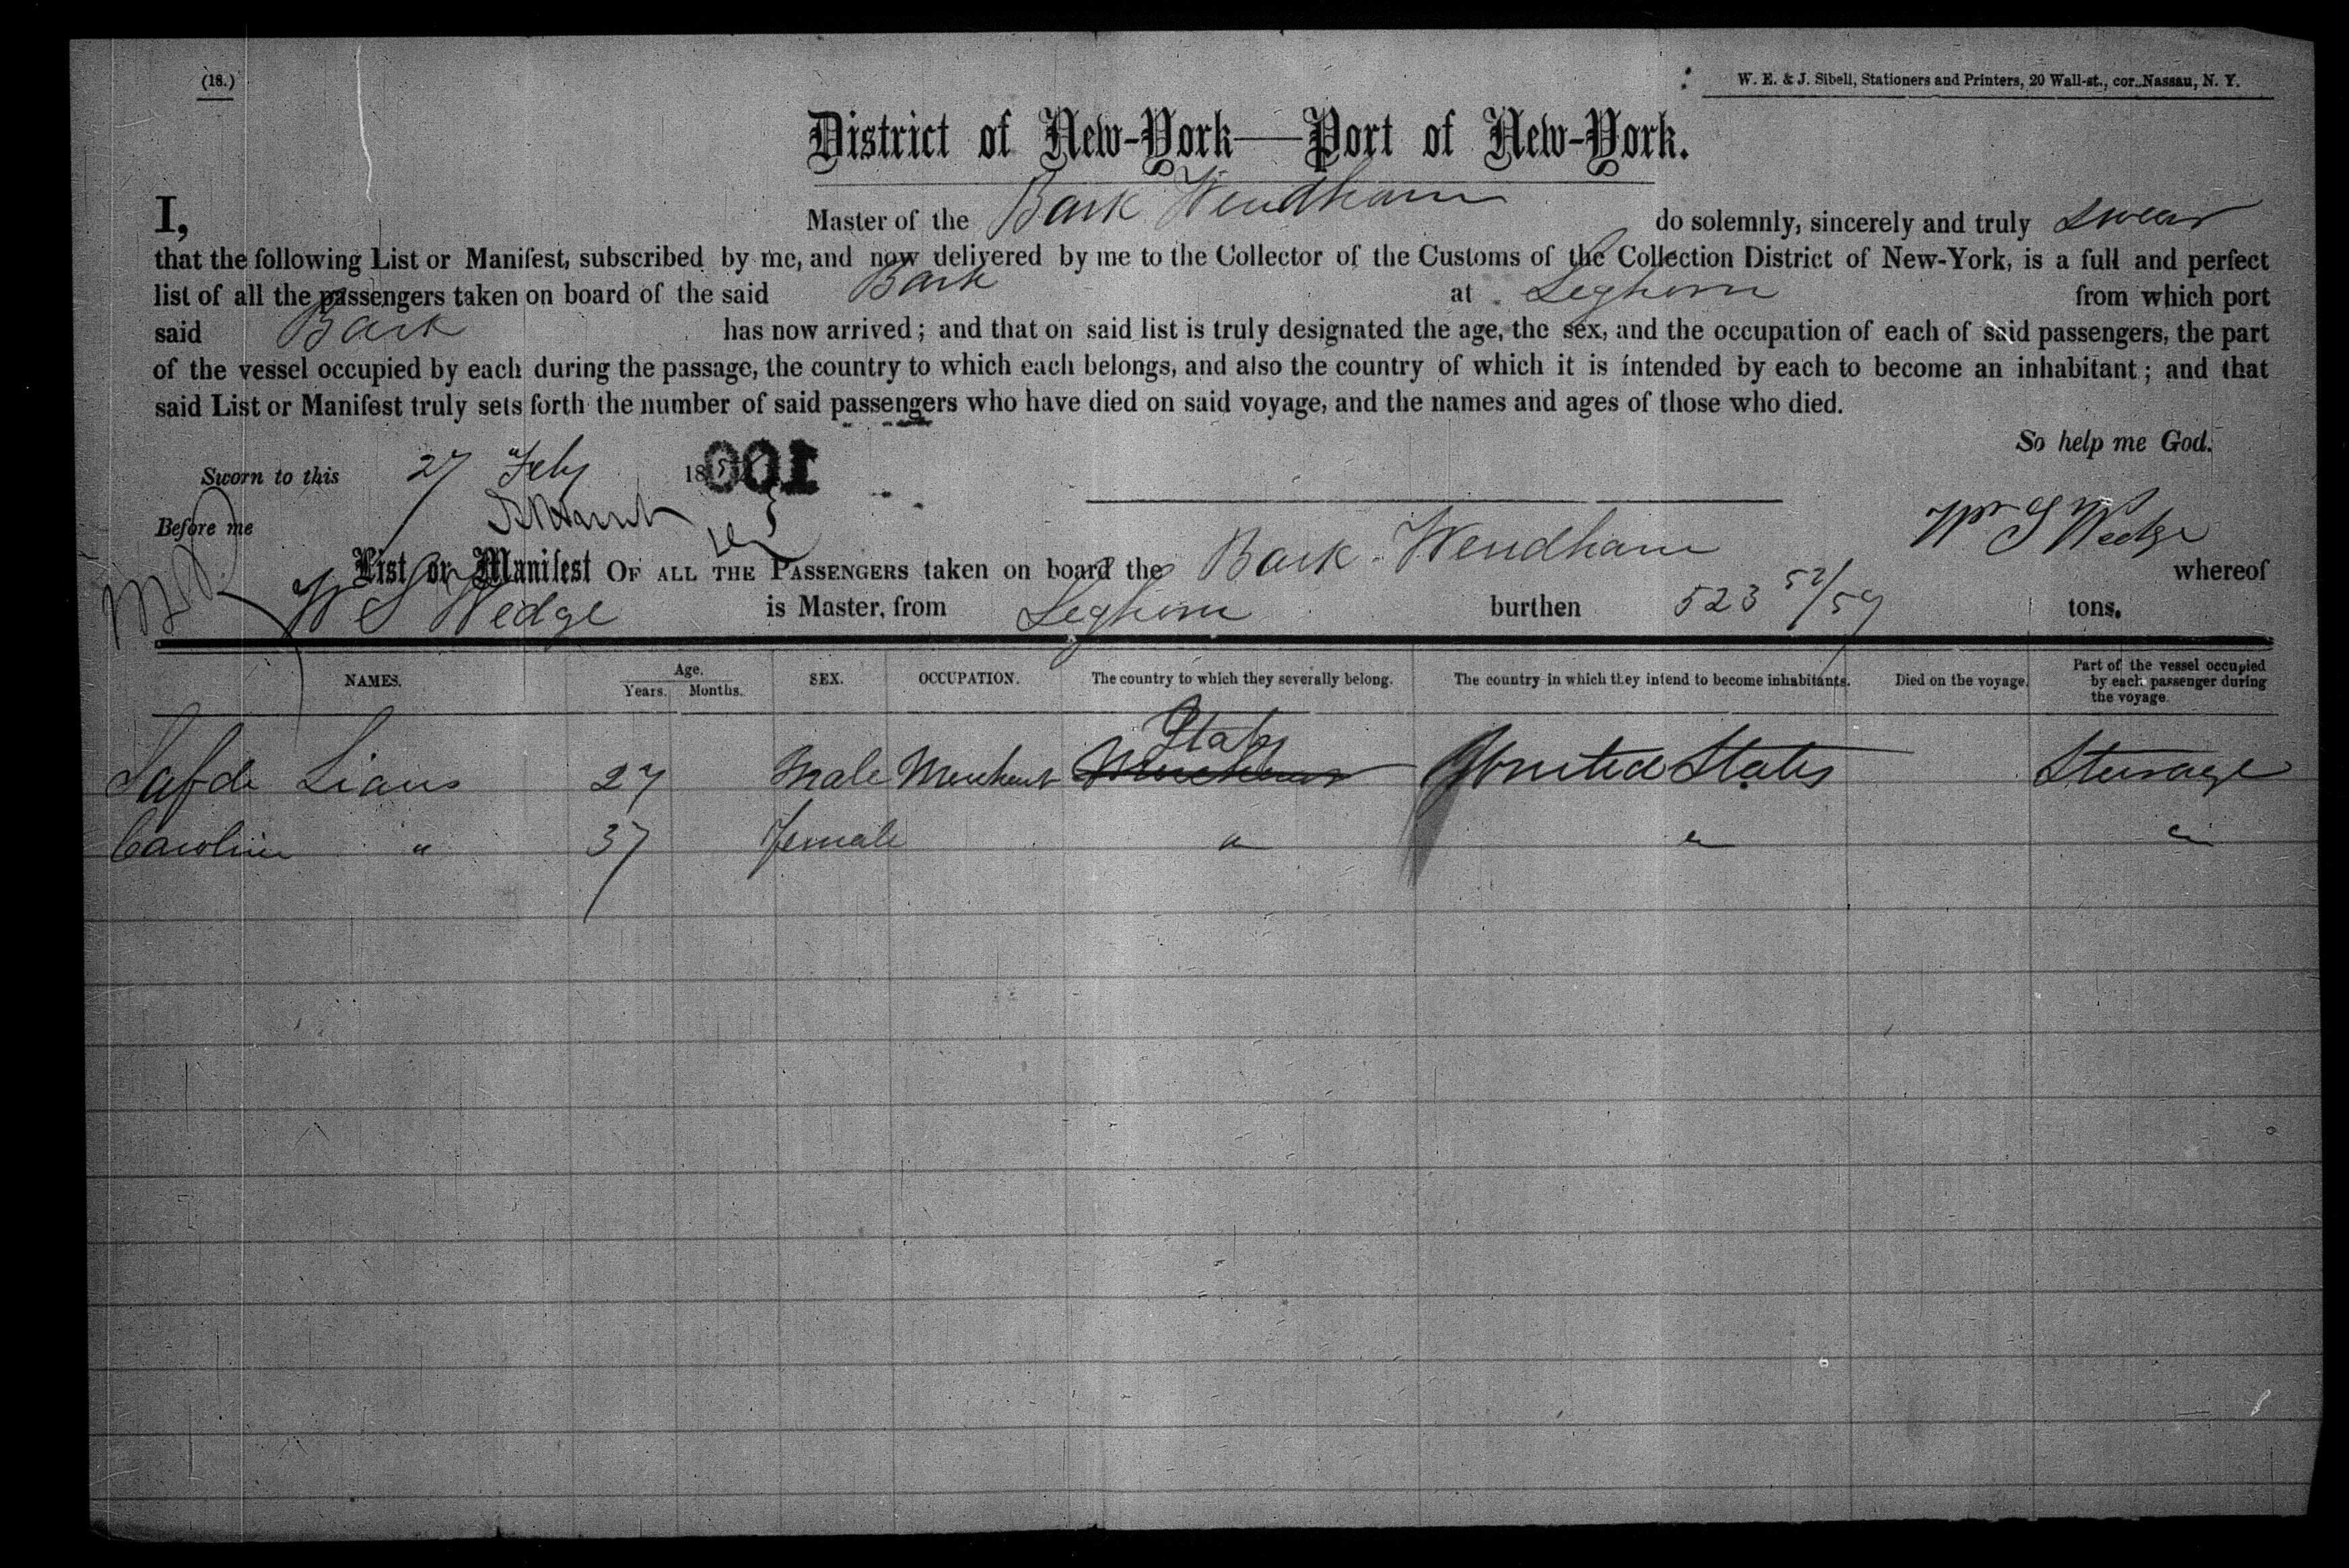 (18.)
W. E. & J. Sibell, Stationers and Printers, 20 Wall-st., cor. Nassau, N. Y.
District of New-York—Port of New-York.
I, Master of the Bark Wendham do solemnly, sincerely and truly swear
that the following List or Manifest, subscribed by me, and now delivered by me to the Collector of the Customs of the Collection District of New-York, is a full and perfect
list of all the passengers taken on board of the said Bark at Leghorn from which port
said Bark has now arrived; and that on said list is truly designated the age, the sex, and the occupation of each of said passengers, the part
of the vessel occupied by each during the passage, the country to which each belongs, and also the country of which it is intended by each to become an inhabitant; and that
said List or Manifest truly sets forth the number of said passengers who have died on said voyage, and the names and ages of those who died.
So help me God.
Sworn to this 27 Feby 18
001
Before me
Wm S Wedge
List or Manifest OF ALL THE PASSENGERS taken on board the Bark Wendham whereof
W S Wedge is Master, from Leghorn burthen 523 52/59 tons.
NAMES. Age. Years. Months. SEX. OCCUPATION. The country to which they severally belong. The country in which they intend to become inhabitants. Died on the voyage. Part of the vessel occupied by each passenger during the voyage.
Lians 27 Male Merchant United States Sterage
Caroline " 37 female " " "